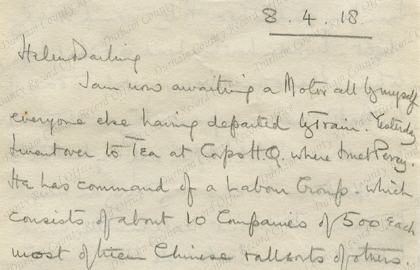 8.4.18
Helen Darling
I am now awaiting a Motor all by myself
everyone else having departed by Train. Yesterday
I went over to Tea at Corps H.Q. where I met Percy.
He has command of a Labour Group - which
consists of about 10 Companies of 500 each
most of them Chinese & all sorts of others.